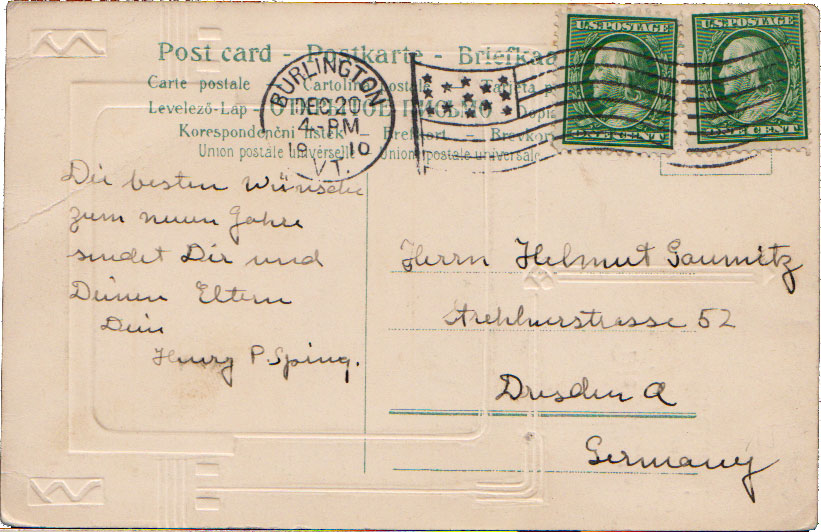 Post card - Postkarte - Briefkaa
Carte postale Cartolina postale Tarjeta p
Levelező-Lap - ОТКРЫТОЕ ПИСЬМО
Korespondenční lístek - Brefkort - Brevkor
Union postale universelle Union postale universale
BURLINGTON
DEC 20
4-PM
1910
VT.
U.S. POSTAGE
ONE CENT
U.S. POSTAGE
ONE CENT
Die besten Wünsche
zum neuen Jahre
sendet Dir und
Deinen Eltern
Dein
Henry P.
Herrn Helmut Gaumitz
Strehlenerstrasse 52
Dresden A
Germany